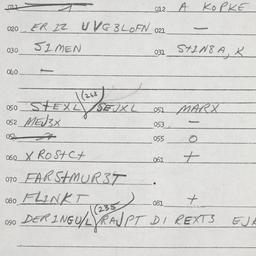 011 012 A KOPKE
020 ER IZ UVG3LOFN 021 —
030 SIMEN 031 STIN8A, K
040 —
050 STEXL (268 SEJXL 051 MARX
052 MEJ3X 053 —
054 055 O
060 XROSTCT 061 +
070 FARSTMUR3T .
080 FLINKT 081 +
090 DERINGU/L (235 RAJPT DI REXT3 EJA